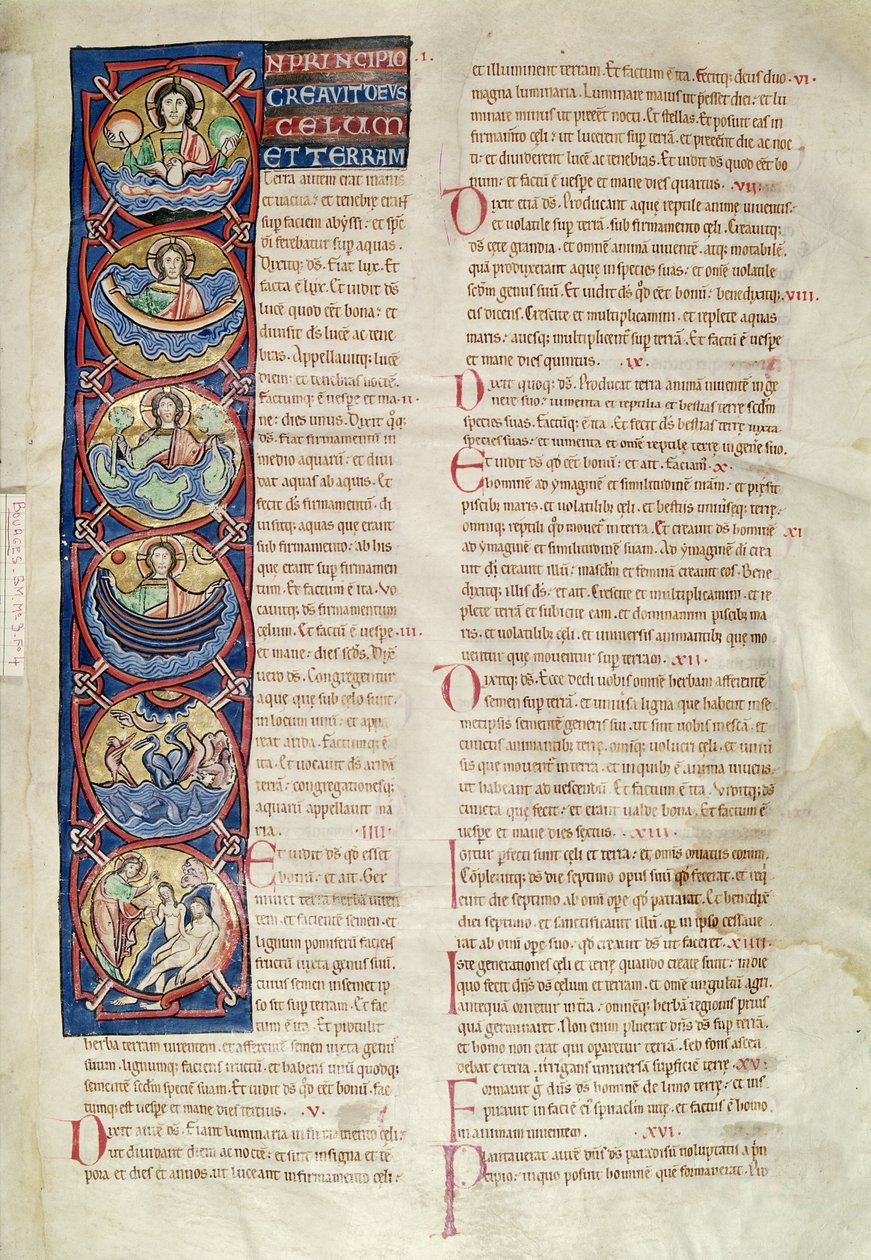 N PRINCIPIO .I.
CREAVIT DEVS
CELUM
ET TERRAM
Terra autem erat inanis
et uacua: et tenebre erant
sup faciem abyssi: et spc
di ferebatur sup aquas.
Dixitq; ds. Fiat lux. Et
facta ē lux. Et uidit ds
lucē quod cēt bona: et
diuisit ds lucē ac tene
bras. Appellauitq; lucē
diem: et tenebras noctem.
Factumq; ē uespe et ma .II.
ne: dies unus. Dixit qq;
ds. Fiat firmamentū in
medio aquarū: et diui
dat aquas ab aquis. Et
fecit ds firmamentū. di
uisitq; aquas que erant
sub firmamento: ab his
que erant sup firmamen
tum. Et factum ē ita. Vo
cauitq; ds firmamentum
celum. Et factū ē uespe .III.
et mane: dies scds. Dix
uero ds. Congregentur
aque que sub celo sunt:
in locum unū: et app
reat arida. Factumq; ē
ita. Et uocauit ds aridā
terrā: congregationesq;
aquarū appellauit ma
ria. .IIII.
Et uidit ds qd esset
bonū: et ait. Ger
minet terra herbā uiren
tem. et facientē semen. et
lignum pomiferū faciens
fructū iuxta genus suū.
cuius semen in semet ip
so sit sup terram. Et fac
tum ē ita. Et protulit
herba terram uirentem. et afferentē semen iuxta genus
suum. lignumq; faciens fructū: et habens unū quodq;
sementē scdm speciē suam. Et uidit ds qd cēt bonū. fac
tumq; est uespe et mane dies tercius. .V.
Dixit autē ds. Fiant luminaria in firmamento celi:
ut diuidant diem ac noctē: et sint in signa et tē
pora et dies et annos. ut luceant in firmamento celi:
et illuminent terram. Et factum ē ita. Fecitq; deus duo .VI.
magna luminaria. Luminare maius ut p̄esset diei: et lu
minare minus ut p̄eēt nocti. Et stellas. Et posuit eas in
firmamto celi: ut lucerent sup terrā. et p̄eēnt die ac noc
ti: et diuiderent lucē ac tenebras. Et uidit ds quod cēt bo
num: et factū ē uespe et mane dies quartus. .VII.
Dixit etiā ds. Producant aque reptile anime uiuentis:
et uolatile sup terrā. sub firmamento celi. Creauitq;
ds cete grandia. et omnē animā uiuentē. atq; motabilē.
quā produxerant aque in species suas: et omē uolatile
scdm genus suū. Et uidit ds qd cēt bonū: benedixitq; .VIII.
eis dicens. Crescite et multiplicamini. et replete aquas
maris: auesq; multiplicent sup terrā. Et factū ē uespe
et mane dies quintus. .IX.
Dixit quoq; ds. Producat terra animā uiuentē in ge
nere suo: iumenta et reptilia et bestias terre scdm
species suas. Factūq; ē ita. Et fecit ds bestias terre iuxta
species suas: et iumenta et omē reptile terre in genē suo.
Et uidit ds qd cēt bonū: et ait. Faciam .X.
hominē ad ymaginē et similitudinē nram: et presit
piscib; maris. et uolatilib; celi. et bestiis uniuseq; terre.
omniq; reptili qd mouet in terra. Et creauit ds hominē .XI
ad ymaginē et similitudinē suam. Ad ymaginē di crea
uit di creauit illū: masclm et feminā creauit eos. Bene
dixitq; illis ds: et ait. Crescite et multiplicamini. et re
plete terrā et subicite eam. et dominamini piscib; ma
ris. et uolatilib; celi. et uniuersis animantib; que mo
uentur que mouentur sup terram. .XII.
Dixitq; ds. Ecce dedi uobis omnē herbam afferentē
semen sup terrā. et uniusa ligna que habent in se
metipsis sementē generis sui. ut sint uobis in escā. et
cunctis animantib; terre. omiq; uolucri celi. et uniu
sis que mouent in terra. et in quib; ē anima uiuens.
ut habeant ad uescendū. Et factum ē ita. Viditq; ds
cuncta que fecit: et erant ualde bona. Et factum ē
uespe et mane dies sextus. .XIII.
Igitur pfecti sunt celi et terra: et omis ornatus eorum.
Cōpleuitq; ds die septimo opus suū qd fecerat. et req
euit die septimo ab omi ope qd patrarat. Et benedix
diei septimo. et sanctificauit illū. qr in ipso cessaue
rat ab omi ope suo. qd creauit ds ut faceret. .XIIII.
Iste generationes celi et terre quando create sunt: in die
quo fecit dns ds celum et terram. et omē uirgultū agri.
antequā oriretur in tra: omnēq; herbā regionis prius
quā germinaret. Non enim pluerat dns ds sup terrā.
et homo non erat qui oparetur terrā. sed fons ascen
debat e terra. irrigans uniuersa supficiem terre. .XV.
Formauit g dns ds hominē de limo terre: et ins
pirauit in faciē ei spiraclm uite. et factus ē homo
in animam uiuentem. .XVI.
Plantauerat autē dns ds paradisū uoluptatis a prin
cipio: in quo posuit hominē quē formauerat. Pro
BOURGES - BM. Ms. 3. Fo 4